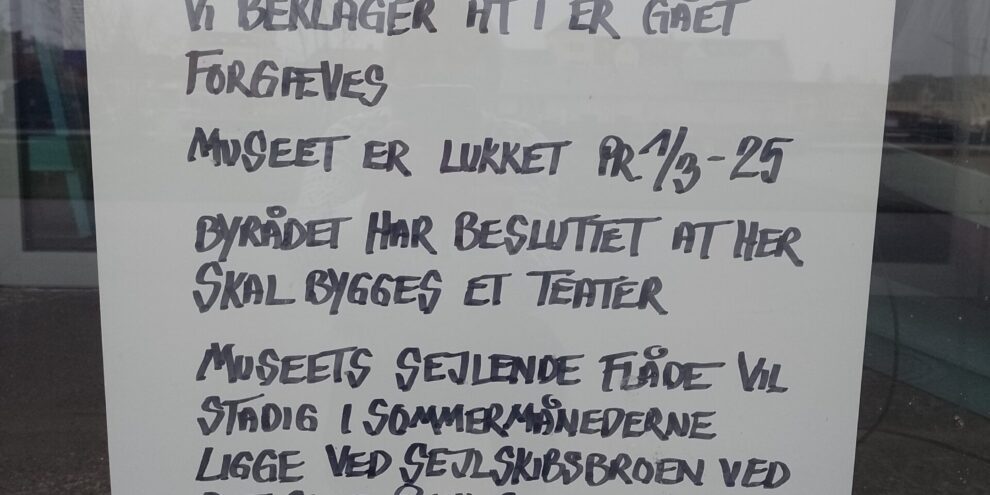 VI BEKLAGER AT I ER GÅET
FORGÆVES
MUSEET ER LUKKET PR 1/3-25
BYRÅDET HAR BESLUTTET AT HER
SKAL BYGGES ET TEATER
MUSEETS SEJLENDE FLÅDE VIL
STADIG I SOMMERMÅNEDERNE
LIGGE VED SEJLSKIBSBROEN VED